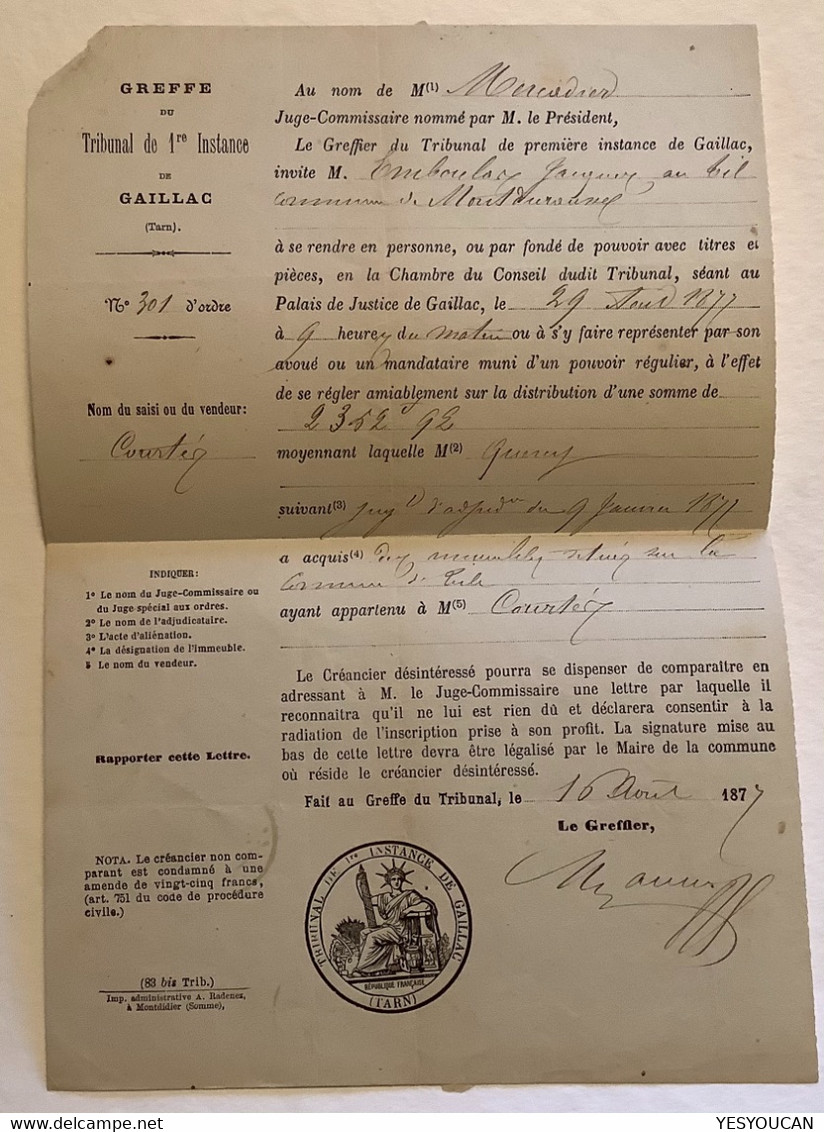 GREFFE
DU
Tribunal de 1re Instance
DE
GAILLAC
(Tarn).
N° 301 d'ordre
Nom du saisi ou du vendeur:
Courtés
INDIQUER:
1° Le nom du Juge-Commissaire ou
du Juge spécial aux ordres.
2° Le nom de l'adjudicataire.
3° L'acte d'aliénation.
4° La désignation de l'immeuble.
5 Le nom du vendeur.
Rapporter cette Lettre.
NOTA. Le créancier non com-
parant est condamné à une
amende de vingt-cinq francs,
(art. 751 du code de procédure
civile.)
(83 bis Trib.)
Imp. administrative A. Radenez,
à Montdidier (Somme),
Au nom de M(1) Mercadier
Juge-Commissaire nommé par M. le Président,
Le Greffier du Tribunal de première instance de Gaillac,
invite M. Emboulas Jacques, au
commune de
à se rendre en personne, ou par fondé de pouvoir avec titres et
pièces, en la Chambre du Conseil dudit Tribunal, séant au
Palais de Justice de Gaillac, le 29 Aout 1877
à 9 heures du matin ou à s'y faire représenter par son
avoué ou un mandataire muni d'un pouvoir régulier, à l'effet
de se régler amiablement sur la distribution d'une somme de
2352 f 92
moyennant laquelle M(2)
suivant(3) jugt d'adjudon du 9 Janvier 1877
a acquis(4) des immeubles situés sur la
Commune de
ayant appartenu à M(5) Courtés
Le Créancier désintéressé pourra se dispenser de comparaître en
adressant à M. le Juge-Commissaire une lettre par laquelle il
reconnaitra qu'il ne lui est rien dû et déclarera consentir à la
radiation de l'inscription prise à son profit. La signature mise au
bas de cette lettre devra être légalisé par le Maire de la commune
où réside le créancier désintéressé.
Fait au Greffe du Tribunal, le 16 Août 1877
Le Greffier,
TRIBUNAL DE 1re INSTANCE DE GAILLAC
RÉPUBLIQUE FRANÇAISE
(TARN)
YESYOUCAN